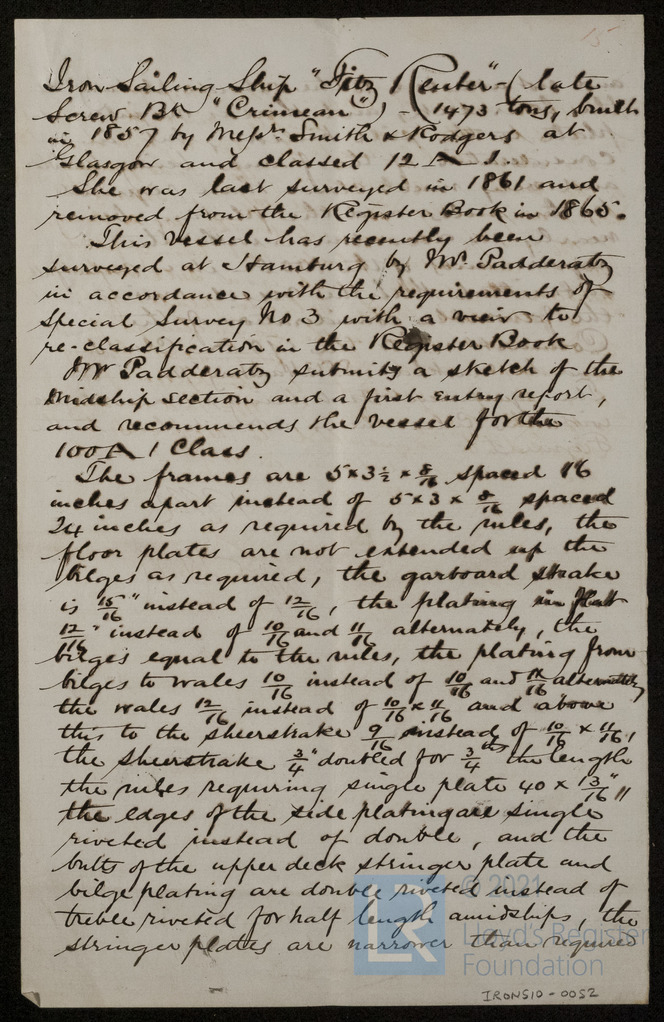 15
Iron Sailing Ship "Fitz Reuter" - (late
Screw Bk "Crimean") - 1473 tons, built
in 1857 by Messrs. Smith & Rodgers at
Glasgow and classed 12 A 1.
She was last surveyed in 1861 and
removed from the Register Book in 1865.
This vessel has recently been
surveyed at Hamburg by Mr. Padderatz
in accordance with the requirements of
Special Survey No 3 with a view to
re-classification in the Register Book
Mr Padderatz submits a sketch of the
Midship section and a first entry report,
and recommends the vessel for the
100 A 1 Class.
The frames are 5 x 3½ x 8/16 spaced 16
inches apart instead of 5 x 3 x 8/16 spaced
24 inches as required by the rules, the
floor plates are not extended up the
bilges as required, the garboard strake
is 15/16" instead of 12/16, the plating in flat
12/16" instead of 10/16 and 11/16 alternately, the
bilges equal to the rules, the plating from
bilges to wales 10/16 instead of 10/16 and 11/16 alternately
the wales 12/16 instead of 10/16 x 11/16 and above
this to the sheerstrake 9/16 instead of 10/16 x 11/16,
the sheerstrake 3/4" doubled for 3/4ths the length
the rules requiring single plate 40 x 13/16",
the edges of the side plating are single
riveted instead of double, and the
butts of the upper deck stringer plate and
bilge plating are double riveted instead of
treble riveted for half length amidships, the
stringer plates are narrower than required
© 2021
LR
Lloyd's Register
Foundation
IRONS10-0052